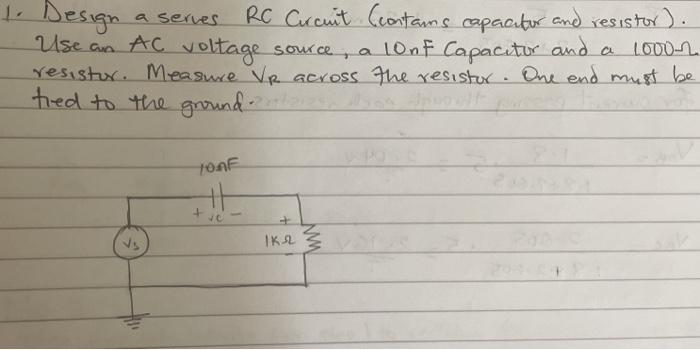 1. Design a series RC Circuit (contains capacitor and resistor).
Use an AC voltage source, a 10nF Capacitor and a 1000Ω
resistor. Measure VR across the resistor. One end must be
tied to the ground.
10nF
+ vc -
+
Vs
1KΩ
-